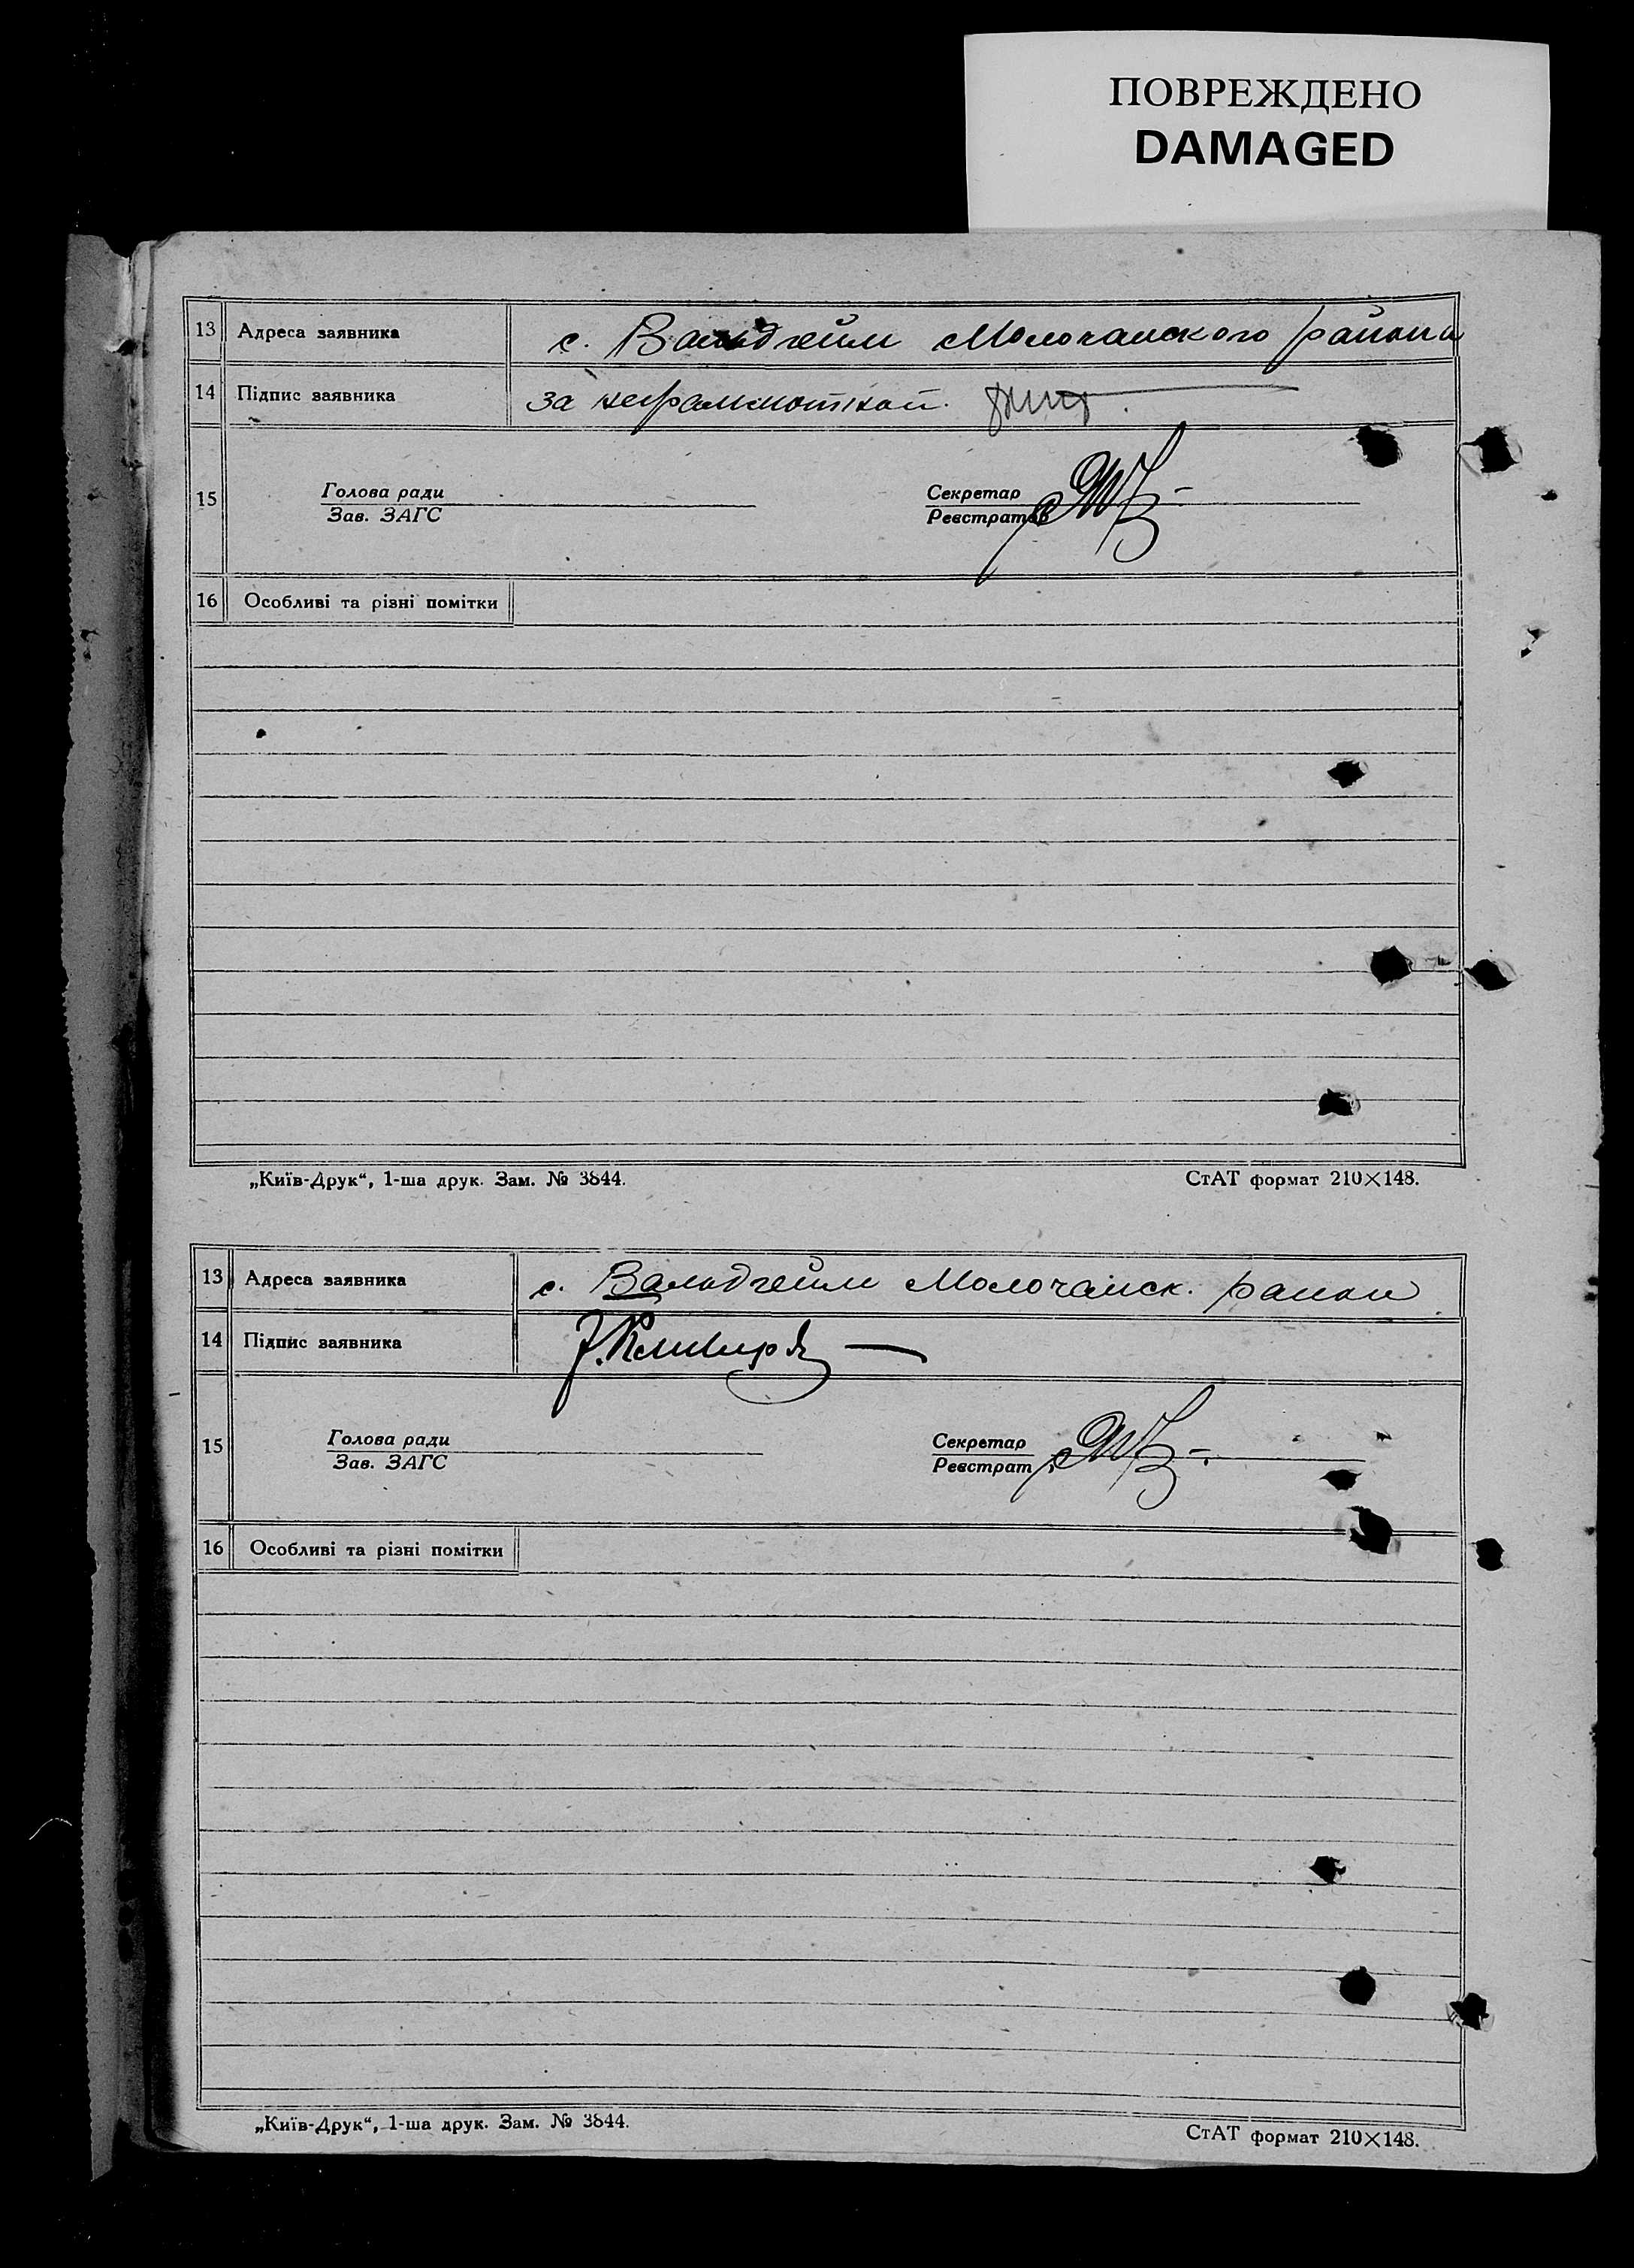 ПОВРЕЖДЕНО
DAMAGED
13 Адреса заявника с. Вальдгейм Молочанского района
14 Підпис заявника за неграмотной.
15 Голова ради Секретар
Зав. ЗАГС Реєстратор
16 Особливі та різні помітки
„Київ-Друк“, 1-ша друк. Зам. № 3844. СтАТ формат 210×148.
13 Адреса заявника с. Вальдгейм Молочанск. район
14 Підпис заявника
15 Голова ради Секретар
Зав. ЗАГС Реєстрат
16 Особливі та різні помітки
„Київ-Друк“, 1-ша друк. Зам. № 3844. СтАТ формат 210×148.